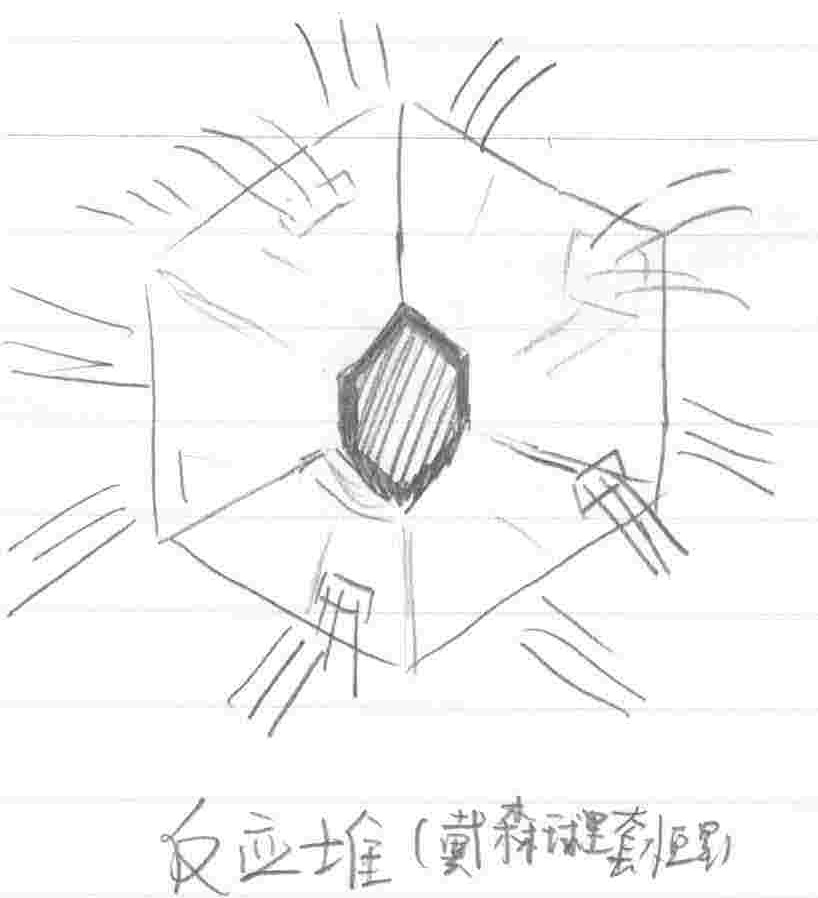 反应堆(戴森球里套恒星)